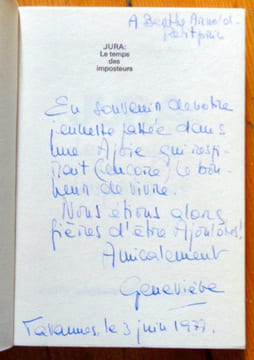 A Berthe Arnold-
Petitprin
JURA:
Le temps
des
imposteurs
En souvenir de notre
jeunesse passée dans
une Ajoie qui respi-
rait (encore) le bon-
heur de vivre.
Nous étions alors
fières d'être Ajoulotes!
Amicalement
Geneviève
Tavannes, le 3 juin 1977.